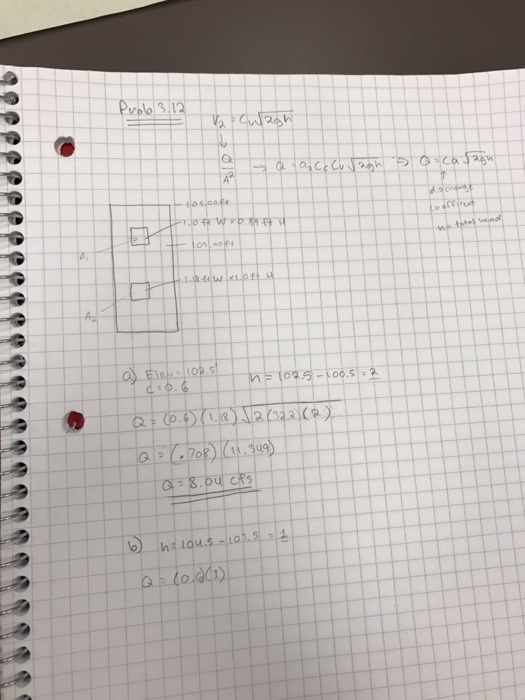 Prob 3.12
V₂ = Cv√2gh
↓
Q/A² → Q = a₂CcCv√2gh ⇒ Q = ca√2gh
↑
discharge
coefficient
h = total head
105.00ft
1.0ft W × 0.89 ft H
A₁
A₂
1.18 ft W × 1.0 ft H
a) Elev = 102.5'
C = 0.6
h = 102.5 - 100.5 = 2
Q = (0.6)(1.18)√2(32.2)(2)
Q = (.708)(11.349)
Q = 8.04 cfs
b) h = 104.5 - 103.5 = 1
Q = (0.6)(1)